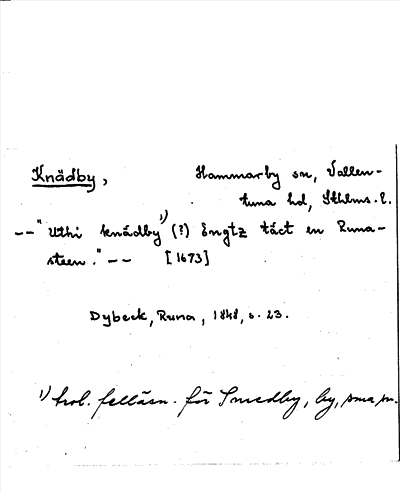 Knädby, Hammarby sn, Vallen-
tuna hd, Sthlms. l.
--"Uthi knädby¹⁾ (?) Engtz täct en Runa-
steen." -- [1673]
Dybeck, Runa, 1848, s. 23.
¹⁾ trol. felläsn. för Smedby, by, sma sn.